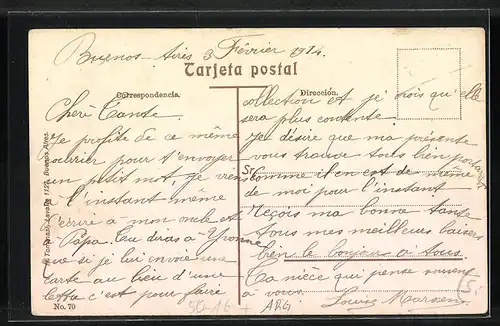 Buenos-Aires 3 Février 1914.
Tarjeta postal
Correspondencia.
Dirección.
Cheré Tante.
Je profite de ce même
courrier pour t'envoyer
un petit mot, je viens
à l'instant même
d'écrire à mon oncle et
Papa. Tu diras à Yvonne
que si je lui envoie une
carte au lieu d'une
lettre c'est pour faire
collection et je crois qu'elle
sera plus contente.
Je désire que ma présente
vous trouve tous bien portants
Sr.
comme il en est de même
de moi pour l'instant
Reçois ma bonne tante
Tous mes meilleurs baisers
bien le bonjour à tous.
Ta nièce qui pense souvent
à vous.
Louise
Buenos Aires
No. 70
50-16
ARG